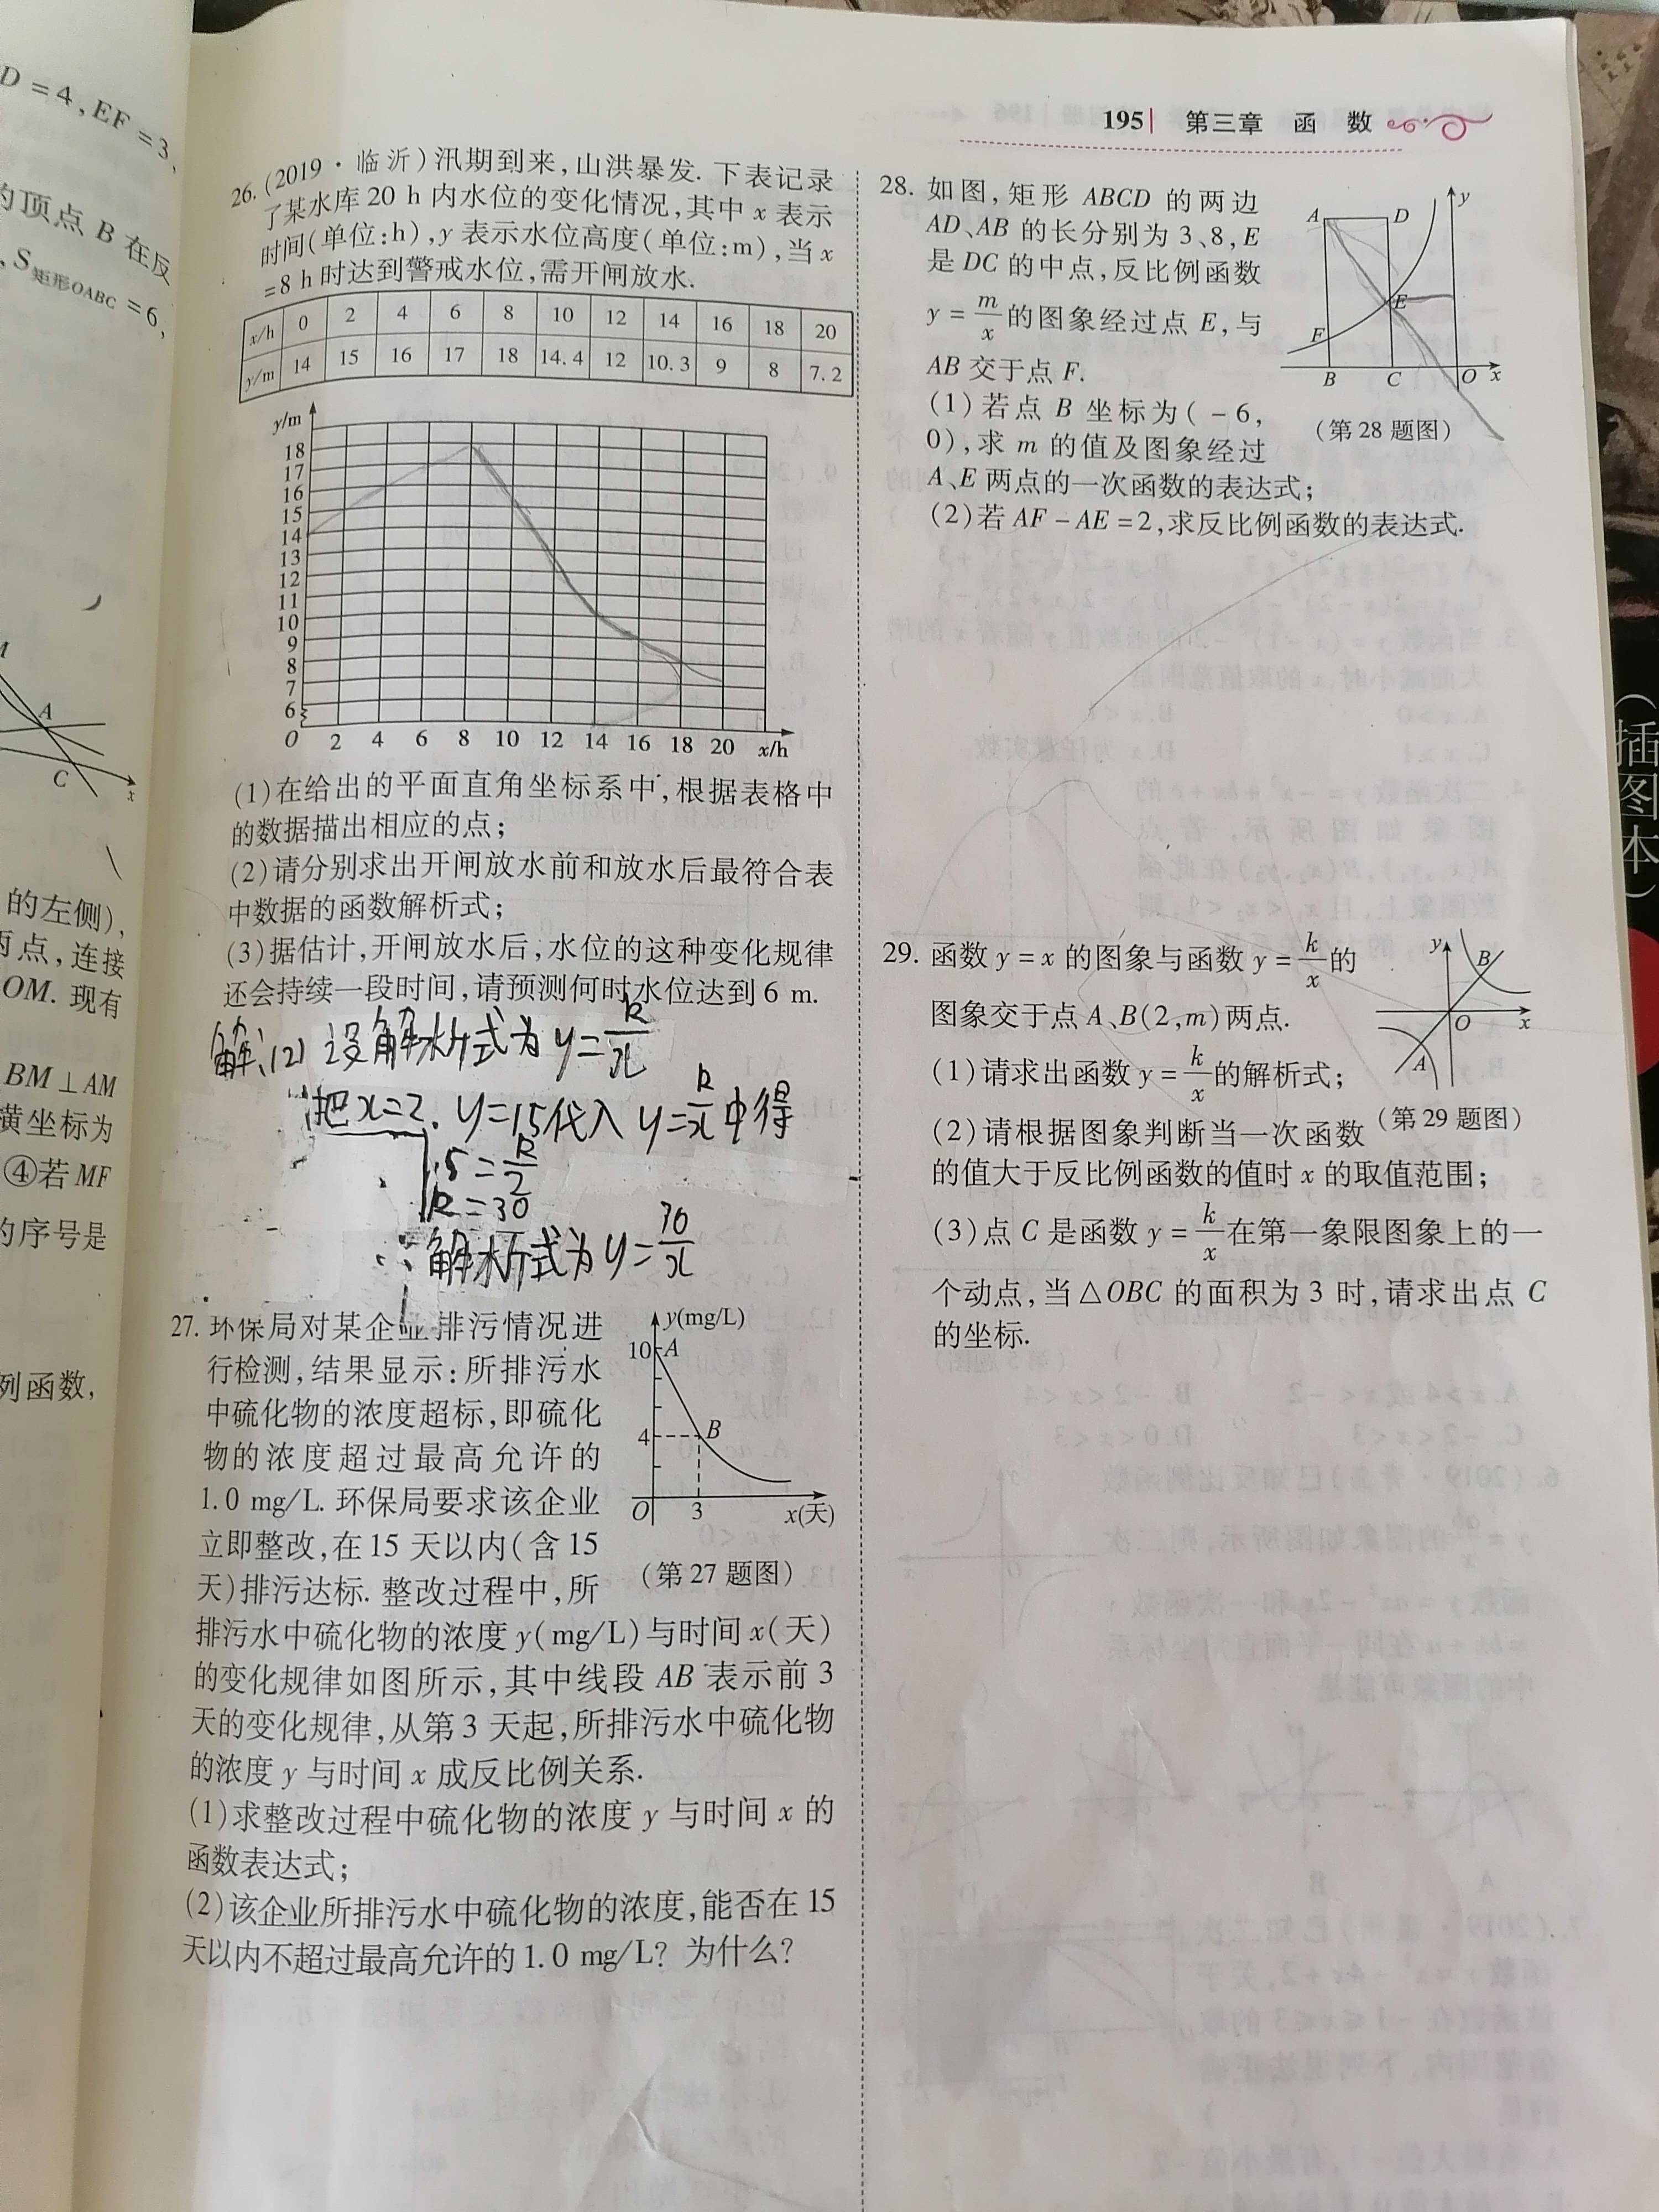 D=4,EF=3,
的顶点 B 在反
,S矩形OABC=6,
A
C
x
的左侧),
两点,连接
OM. 现有
BM⊥AM
横坐标为
④若 MF
的序号是
列函数,
195| 第三章 函 数
26.(2019·临沂)汛期到来,山洪暴发.下表记录
了某水库20 h内水位的变化情况,其中 x 表示
时间(单位:h),y 表示水位高度(单位:m),当 x
=8 h时达到警戒水位,需开闸放水.
x/h 0 2 4 6 8 10 12 14 16 18 20
y/m 14 15 16 17 18 14.4 12 10.3 9 8 7.2
y/m
18
17
16
15
14
13
12
11
10
9
8
7
6
O 2 4 6 8 10 12 14 16 18 20 x/h
(1)在给出的平面直角坐标系中,根据表格中
的数据描出相应的点;
(2)请分别求出开闸放水前和放水后最符合表
中数据的函数解析式;
(3)据估计,开闸放水后,水位的这种变化规律
还会持续一段时间,请预测何时水位达到6 m.
解:(2) 设解析式为 y=k/x
把x=2. y=15代入 y=k/x中得
15=k/2
k=30
∴解析式为y=30/x
27. 环保局对某企业排污情况进
行检测,结果显示:所排污水
中硫化物的浓度超标,即硫化
物的浓度超过最高允许的
1.0 mg/L.环保局要求该企业
立即整改,在15天以内(含15
天)排污达标.整改过程中,所
排污水中硫化物的浓度 y(mg/L)与时间 x(天)
的变化规律如图所示,其中线段 AB 表示前3
天的变化规律,从第3天起,所排污水中硫化物
的浓度 y 与时间 x 成反比例关系.
(1)求整改过程中硫化物的浓度 y 与时间 x 的
函数表达式;
(2)该企业所排污水中硫化物的浓度,能否在15
天以内不超过最高允许的1.0 mg/L?为什么?
y(mg/L)
10 A
4 B
O 3 x(天)
(第27题图)
28. 如图,矩形 ABCD 的两边
AD、AB 的长分别为3、8,E
是 DC 的中点,反比例函数
y=m/x的图象经过点 E,与
AB 交于点 F.
(1)若点 B 坐标为(-6,
0),求 m 的值及图象经过
A、E 两点的一次函数的表达式;
(2)若 AF-AE=2,求反比例函数的表达式.
y
A D
E
F
B C O x
(第28题图)
29. 函数 y=x 的图象与函数 y=k/x的
图象交于点 A、B(2,m)两点.
(1)请求出函数 y=k/x的解析式;
(2)请根据图象判断当一次函数
的值大于反比例函数的值时 x 的取值范围;
(3)点 C 是函数 y=k/x在第一象限图象上的一
个动点,当△OBC 的面积为3时,请求出点 C
的坐标.
y
B
O x
A
(第29题图)
(插图本)